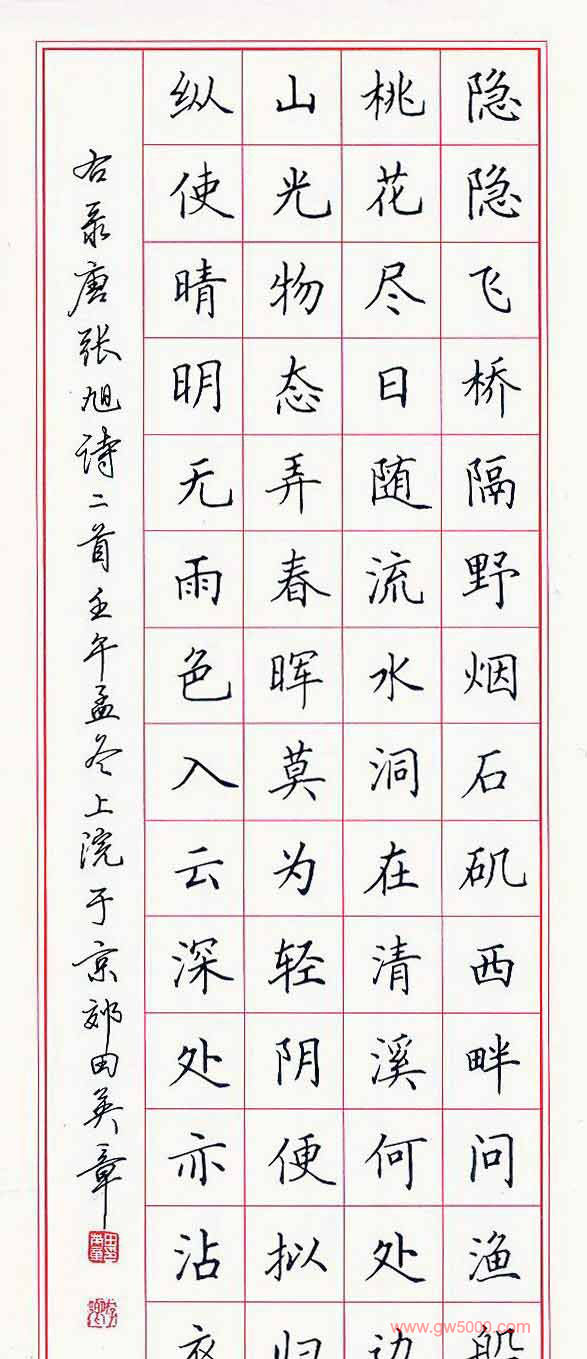 隐隐飞桥隔野烟石矶西畔问渔船
桃花尽日随流水洞在清溪何处边
山光物态弄春晖莫为轻阴便拟归
纵使晴明无雨色入云深处亦沾衣
右录唐张旭诗二首壬午孟冬上浣于京郊田英章
www.gw5000.com